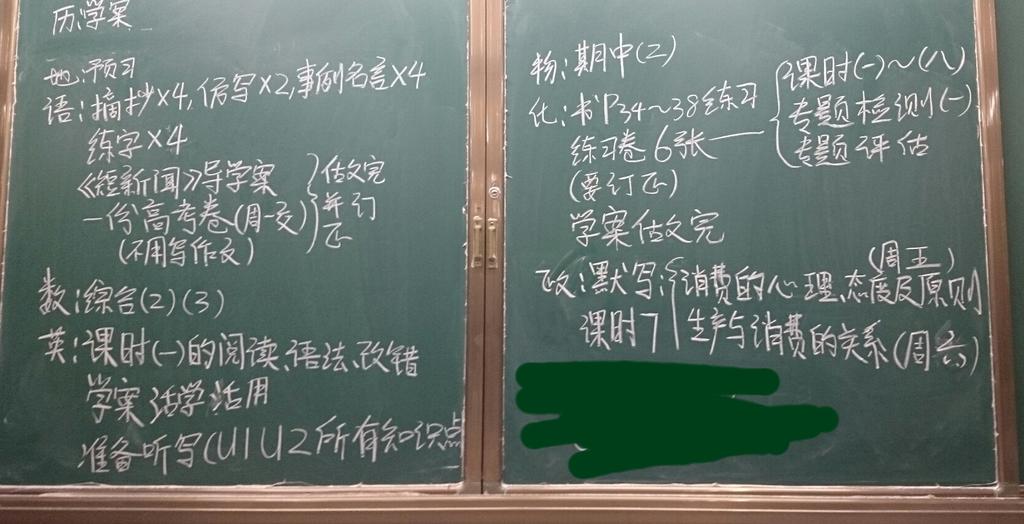 历:学案
地:预习
语:摘抄×4,仿写×2,事例名言×4
练字×4
《短新闻》导学案
一份高考卷(周一交)
(不用写作文)
做完
并订
正
数:综合(2)(3)
英:课时(一)的阅读、语法、改错
学案 活学活用
准备听写(U1U2所有知识点
物:期中(2)
化:书P34～38练习
练习卷6张——
课时(一)～(八)
专题检测(一)
专题评估
(要订正)
学案做完
政:默写:
消费的心理、态度及原则
(周五)
生产与消费的关系(周六)
课时7